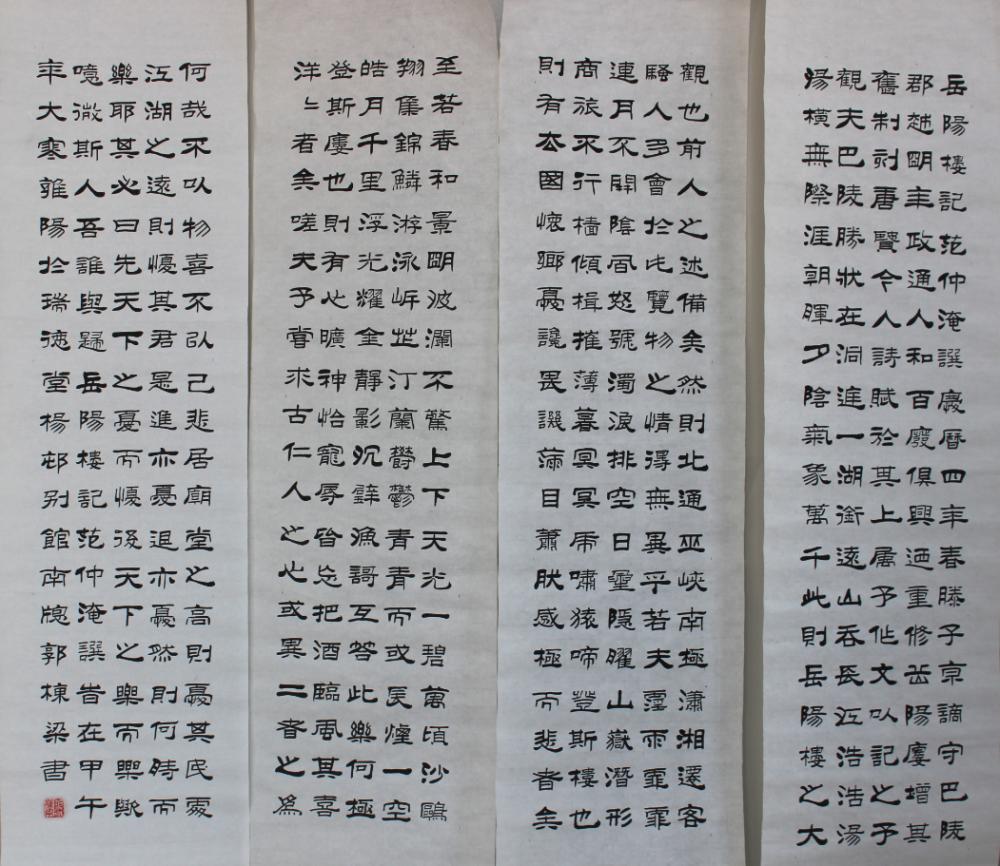 岳陽樓記范仲淹譔慶曆四年春滕子京謫守巴陵
郡越明年政通人和百廢俱興迺重修岳陽樓增其
舊制刻唐賢今人詩賦於其上屬予作文以記之予
觀夫巴陵勝狀在洞庭一湖銜遠山吞長江浩浩湯
湯橫無際涯朝暉夕陰氣象萬千此則岳陽樓之大
觀也前人之述備矣然則北通巫峽南極瀟湘遷客
騷人多會於此覽物之情得無異乎若夫霪雨霏霏
連月不開陰風怒號濁浪排空日星隱曜山嶽潛形
商旅不行檣傾楫摧薄暮冥冥虎嘯猿啼登斯樓也
則有去國懷鄉憂讒畏譏滿目蕭然感極而悲者矣
至若春和景明波瀾不驚上下天光一碧萬頃沙鷗
翔集錦鱗游泳岸芷汀蘭鬱鬱青青而或長煙一空
皓月千里浮光耀金靜影沉璧漁歌互答此樂何極
登斯樓也則有心曠神怡寵辱皆忘把酒臨風其喜
洋〻者矣嗟夫予嘗求古仁人之心或異二者之為
何哉不以物喜不以己悲居廟堂之高則憂其民處
江湖之遠則憂其君是進亦憂退亦憂然則何時而
樂耶其必曰先天下之憂而憂後天下之樂而樂歟
噫微斯人吾誰與歸岳陽樓記范仲淹譔昔在甲午
年大寒雒陽於瑞德堂楊邨別館南牕郭棟梁書